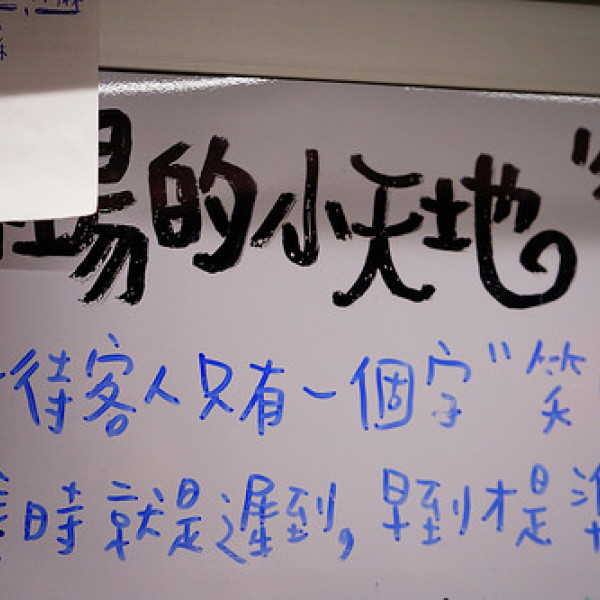 場的小天地"
待客人只有一個字"笑
時就是遲到,早到才是準